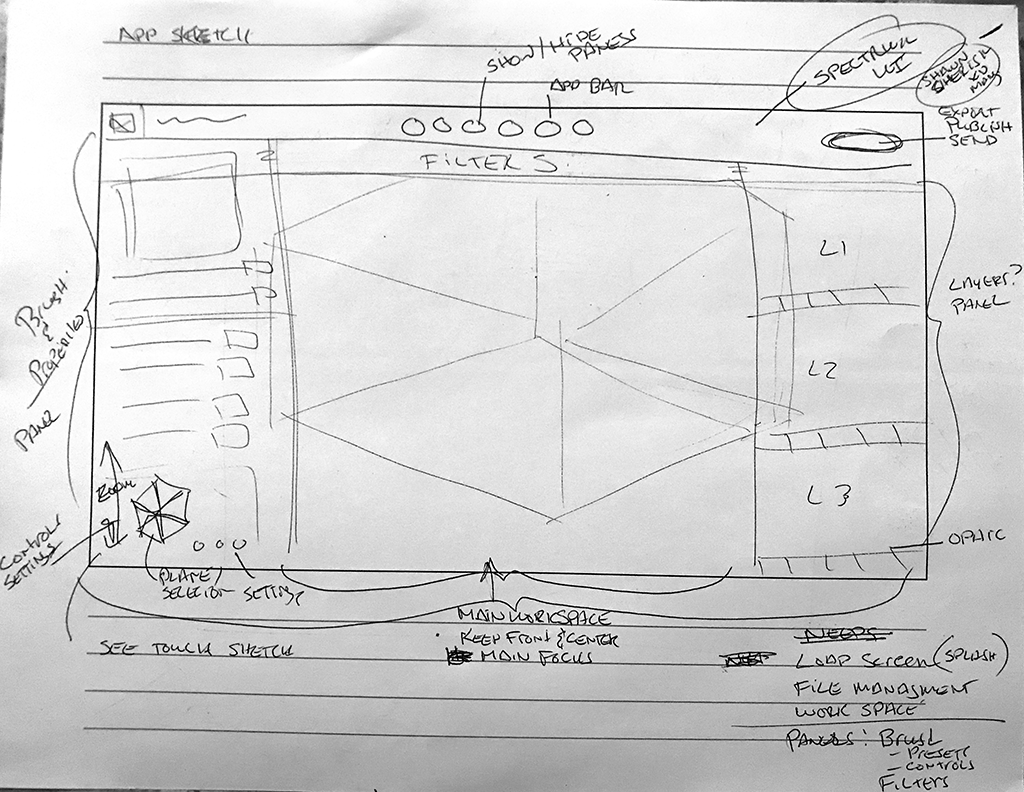 APP SKETCH
SHOW/HIDE
PANELS
APP BAR
SPECTRUM
UI
EXPORT
PUBLISH
SEND
FILTERS
L1
L2
L3
LAYERS?
PANEL
Brush
&
Properties
PANEL
ZOOM
CONTROL
SETTINGS
PLANE/
SELECTION SETTINGS
OPAIC
MAIN WORKSPACE
KEEP FRONT & CENTER
MAIN FOCUS
SEE TOUCH SKETCH
NEEDS
LOAD SCREEN (SPLASH)
FILE MANAGMENT
WORK SPACE
PANELS: BRUSH
- PRESETS
- CONTROLS
FILTERS